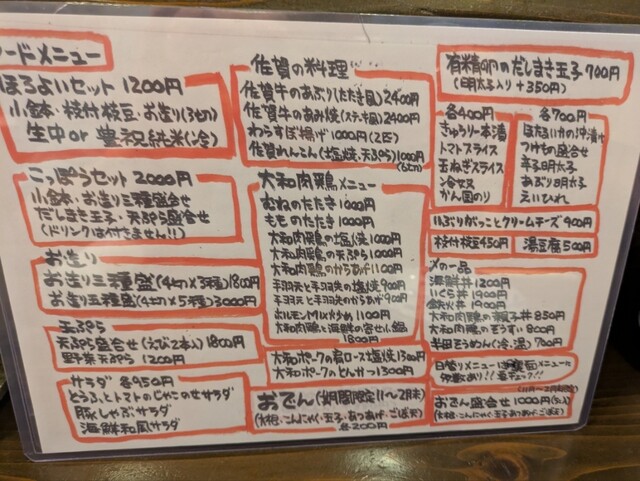 ードメニュー
ほろよいセット 1200円
小鉢・枝付枝豆・お造り(3切)
生中or 豊祝純米(冷)
こっぽうセット 2000円
小鉢・お造り三種盛合せ
だしまき玉子・天ぷら盛合せ
(ドリンクは付きません!!)
お造り
お造り三種盛(4切×3種)1800円
お造り五種盛(4切×5種)3000円
天ぷら
天ぷら盛合せ(えび2本入)1800円
野菜天ぷら 1200円
サラダ 各950円
とうふとトマトのじゃこのせサラダ
豚しゃぶサラダ
海鮮和風サラダ
佐賀の料理
佐賀牛のあぶり(たたき風)2400円
佐賀牛のあみ焼(ステーキ風)2400円
わらすぼ揚げ1000円(2匹)
佐賀れんこん(塩焼・天ぷら)1000円
大和肉鶏メニュー
むねのたたき 1000円
もものたたき 1000円
大和肉鶏の塩焼1000円
大和肉鶏の天ぷら1000円
大和肉鶏のからあげ1100円
手羽元と手羽先の塩焼900円
手羽元と手羽先のからあげ900円
ホルモンMix炒め1100円
大和肉鶏と海鮮の寄せ小鍋
1800円
大和ポークの肩ロース塩焼1300円
大和ポークのとんかつ1300円
おでん(期間限定11〜2月末)
(大根・こんにゃく・玉子・あつあげ・ごぼ天)
各200円
有精卵のだしまき玉子700円
(明太子入り+350円)
各400円
きゅうり一本漬
トマトスライス
玉ねぎスライス
冷奴
かん国のり
各700円
ほたるいかの沖漬け
つけもの盛合せ
辛子明太子
あぶり明太子
えいひれ
いぶりがっことクリームチーズ900円
枝付枝豆450円
湯豆腐500円
〆の一品
海鮮丼 1200円
いくら丼 1900円
鉄火丼 1900円
大和肉鶏の親子丼850円
大和肉鶏のぞうすい800円
半田そうめん(冷,温)700円
日替りメニューに
(11月〜2月末限定)
おでん盛合せ1000円(5ヶ入)
(大根・こんにゃく・玉子・あつあげ・ごぼ天)